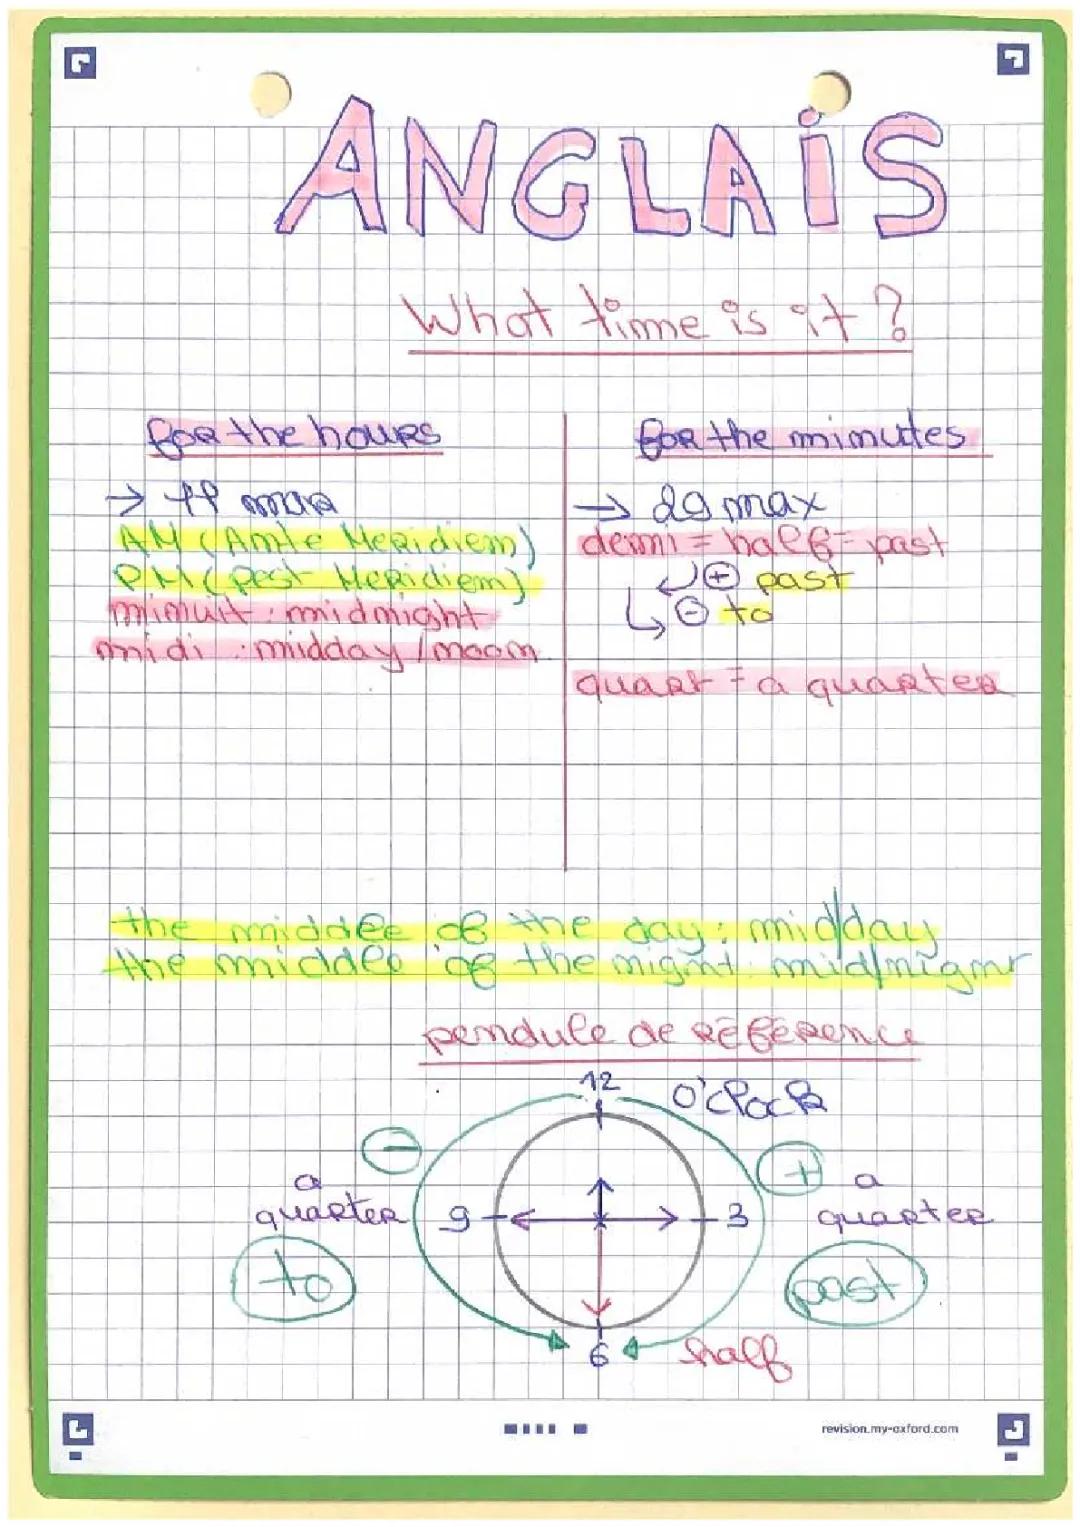 ANGLAiS
What time is it ?
for the hours
→ 11 max
AM (Ante Meridiem)
PM (Post Meridiem)
minuit : midnight
midi : midday / noon
for the minutes
→ 29 max
demi = half = past
+ past
- to
quart = a quarter
the middle of the day : mid/day
the middle of the night : mid/night
pendule de référence
12 O'clock
- +
a quarter 9 3 a quarter
to past
6 half
revision.my-oxford.com